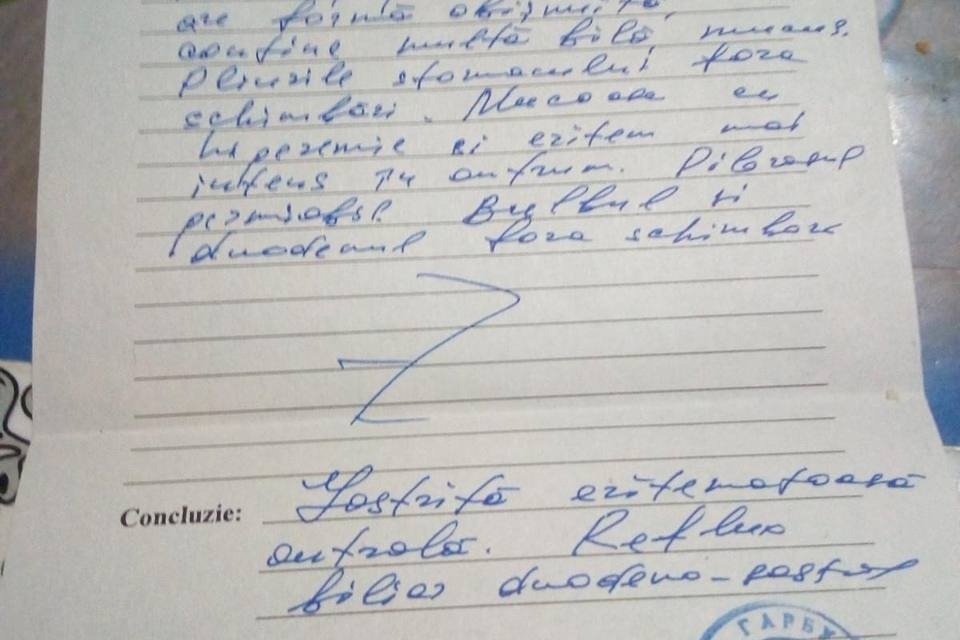 are formă obișnuită,
conține multă bilă, mucus.
Pliurile stomacului fora
schimbări. Mucoasa cu
hiperemie și eritem mai
intens în antrum. Pilorusul
permiabil. Bulbul și
duodenul fora schimbare
Concluzie: Gastrită eritematoasă
antrală. Reflux
biliar duodeno-gastral
ГАРБУ